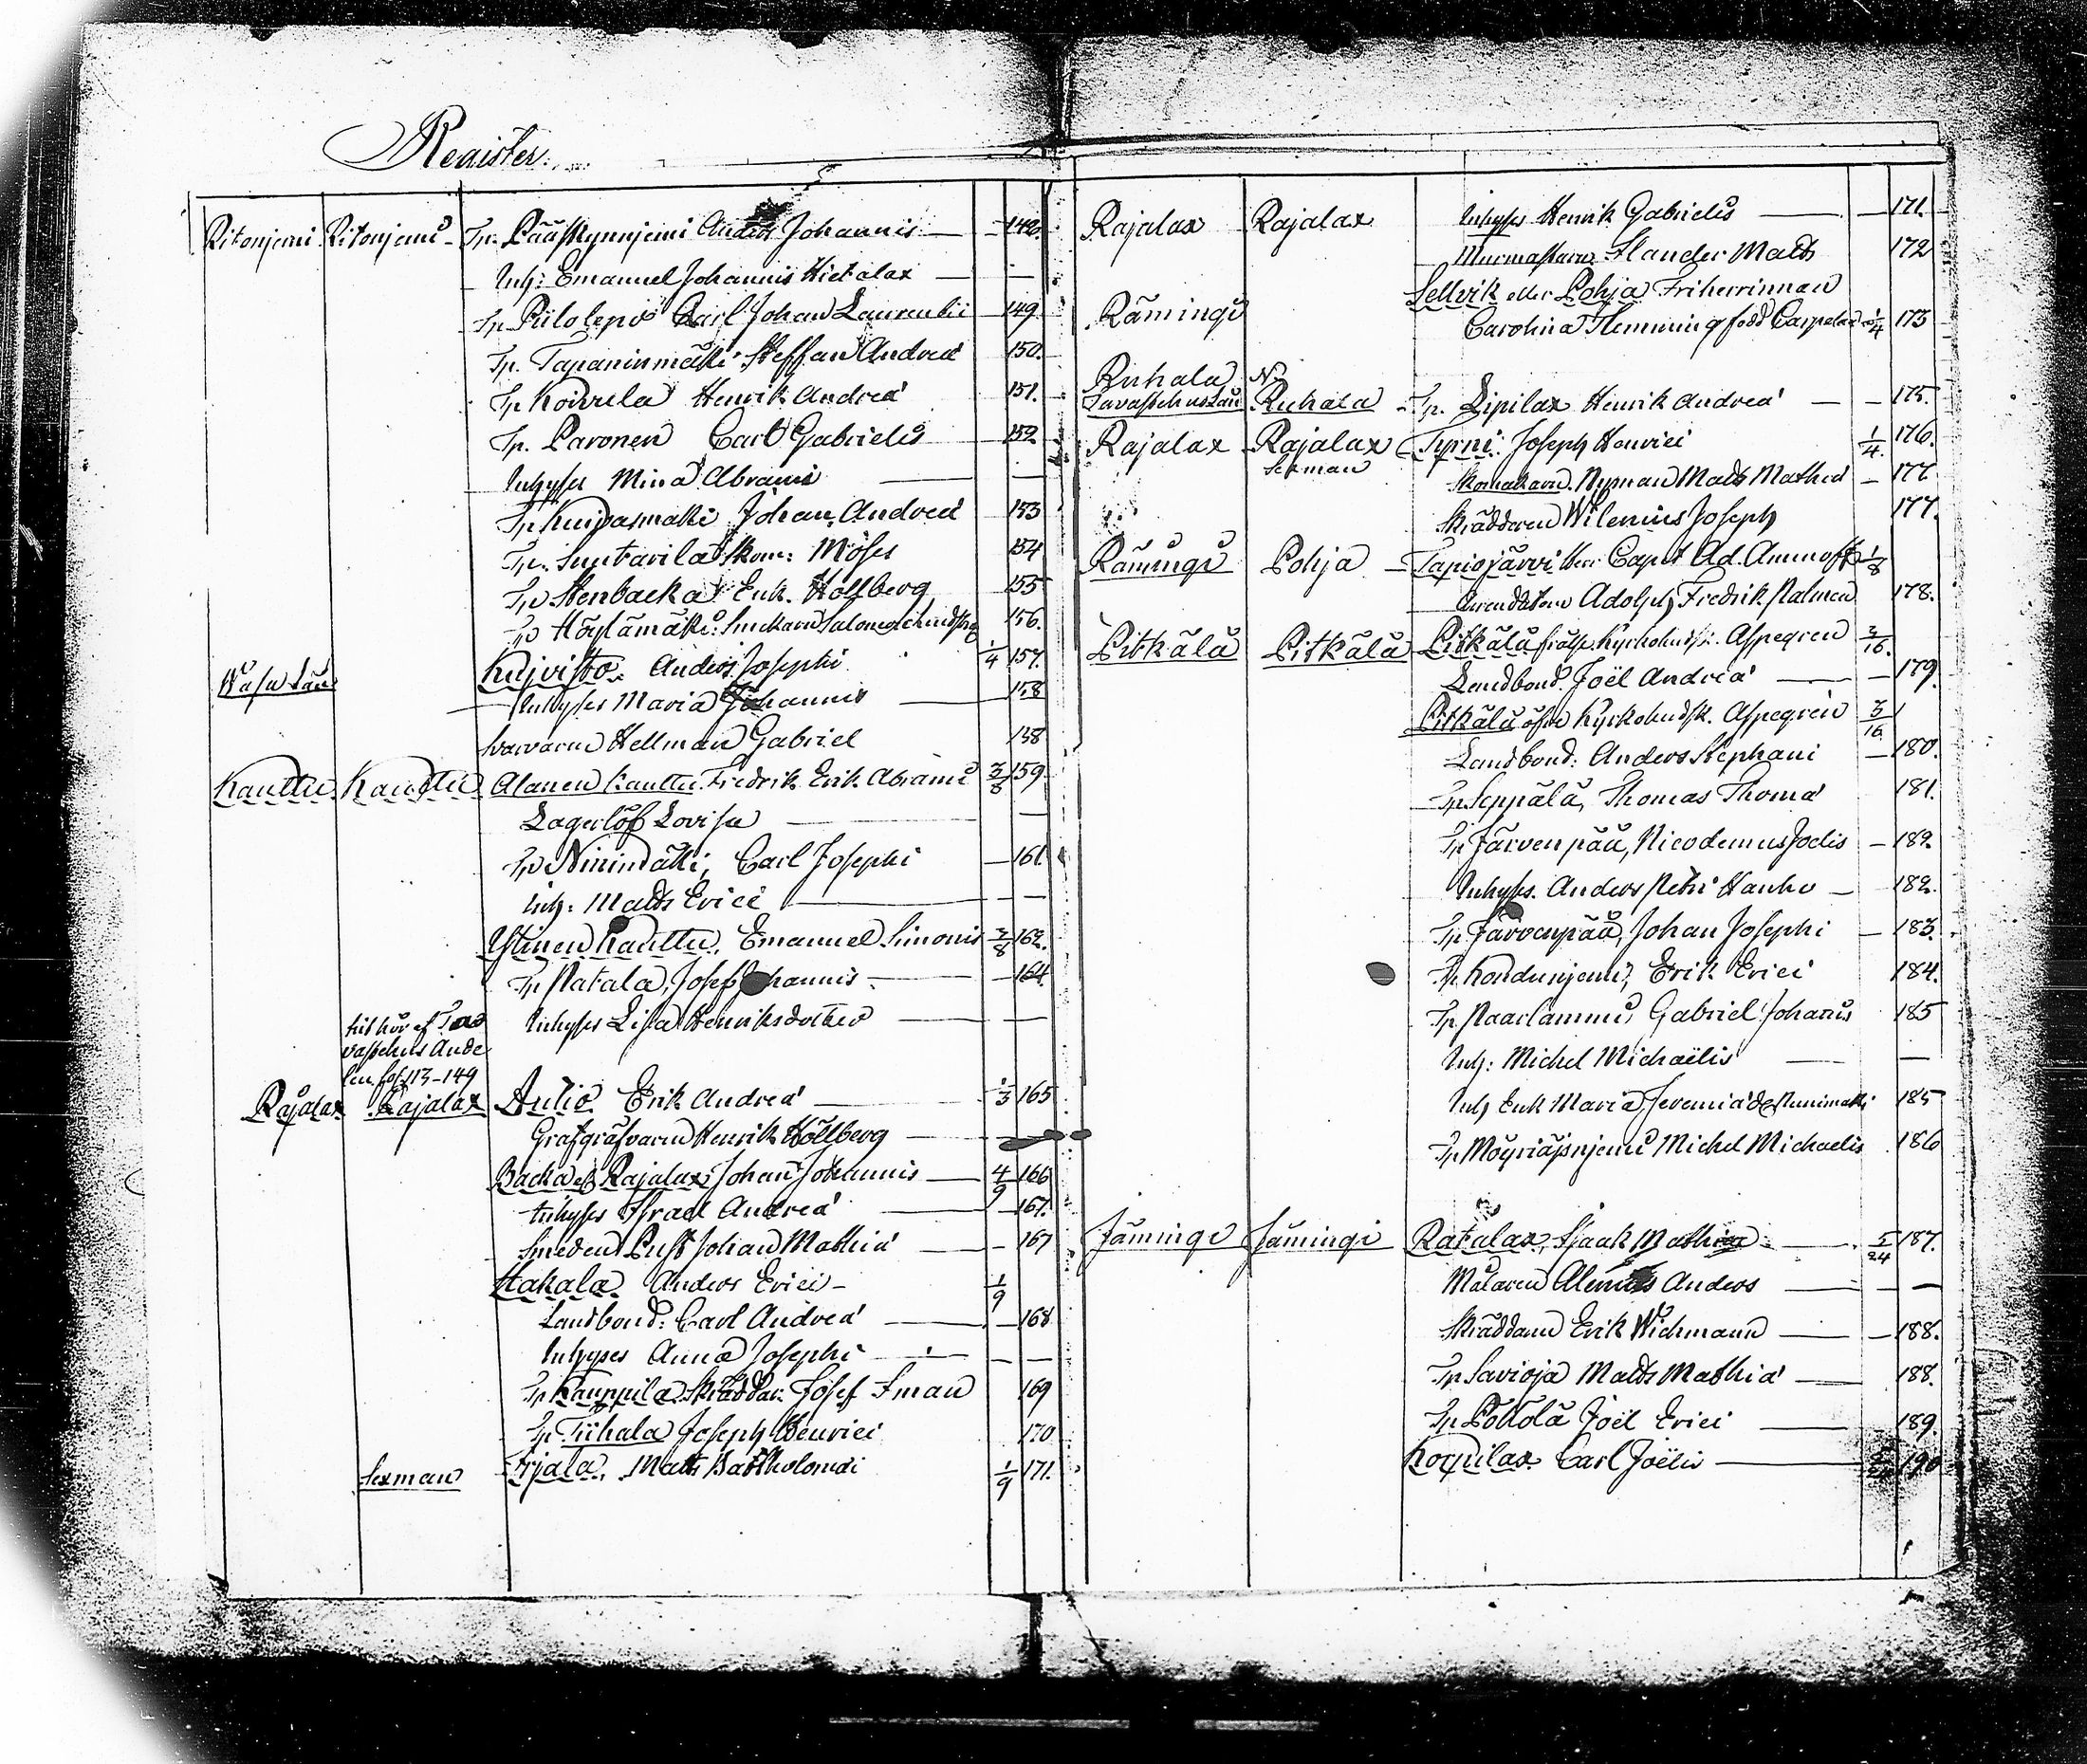 Register.
Ritonjemi Ritonjemi Tp. Pääskynnjemi Anders Johannis — 148.
Inh: Emanuel Johannis Hietalax —
Tp. Piilolepo Carl Johan Laurentii 149
Tp. Tapaninmäki Steffan Andreæ 150.
Tp Koivula Henrik Andreæ 151.
Tp. Paronen Carl Gabrielis 152
Inhyses Mina Abrami —
Tp Johan Andreæ 153
Tp. Suutarila Skom: Moses 154
Tp Stenbacka Enk. Hollberg 155
Tp Höylämäki 156.
Wasa Län Kujvisto. Anders Josephi 1/4 157.
Inhyses Maria Johannis — 158
Svarvaren Hellman Gabriel 158
Kauttu Kauttu Alanen Kauttu Fredrik Erik Abrami 3/8 159
Lagerlöf Lovisa —
Tp Niinimäki, Carl Josephi — 161
Inh: Matts Erici —
Ylinen Kauttu, Emanuel Simonis 3/8 162.
Tp Ratala, Josef Johannis — 164
Inhyses Lisa Henriksdotter —
tillhör af Ta
vastehus Ande
len. fol. 113-149
Rajalax Rajalax Aulio Erik Andreæ — 1/3 165
Grafgräfvaren Henrik Hollberg —
Backa el. Rajalax Johan Johannis — 4/9 166
Inhyses Israel Andreæ — 167.
Smeden Johan Mathiæ — 167
Hakala Anders Erici — 1/9
Landbond: Carl Andreæ — 168
Inhyses Anna Josephi —
Tp Kauppila Skräddar. Josef Iman 169
Tp Tiihala Joseph Henrici 170
Sexman Irjala, Matts Bartholomæi 1/9 171.
Rajalax Rajalax Inhyses Henrik Gabrielis — 171.
Murmästaren Hlander Matts 172
Sellvik eller Pohja Friherrinnan
Rämingi Carolina Flemming född Carpelan 1/4 173
Ruhala N.
Tavastehus Län Ruhala Tp. Lipilax Henrik Andreæ — 175.
Rajalax Rajalax Tyrni: Joseph Henrici 1/4 176.
Sexman Skomakaren Nyman Matts Mathiæ — 177
Skräddaren Wilenius Joseph 177.
Rämingi Pohja Tapiojärvi Herr Capit Ad. Aminoff 1/8
Arendatorn Adolph Fredrik Palmen 178.
Pitkälä Pitkälä Pitkälä frälse Kyrkoherdsk. Aspegren 3/16.
Landbond. Joël Andreæ — 179.
Pitkälä öfre Kyrkoherdsk. Aspegren 3/16
Landbond: Anders Stephani — 180.
Tp Seppälä, Thomas Thomæ 181.
Tp Järvenpää, Nicodemus Joelis — 182.
Inhyses. Anders Petri Hanho — 182.
Tp Järvenpää, Johan Josephi — 183.
Tp. Kondunjemi, Erik Erici 184.
Tp Naarlammi, Gabriel Johanis 185
Inh: Michel Michaëlis —
Inh Enk Maria Jeremiæ 185
Tp Michel Michaelis 186
Jämingi Jämingi Ratalax, Isaak Mathiæ — 5/24 187.
Målaren Alenius Anders —
Skräddaren Erik Wichmann — 188.
Tp Savioja Matts Mathiæ — 188.
Tp Pollola Joël Erici — 189.
Korpilax Carl Joëlis — 190